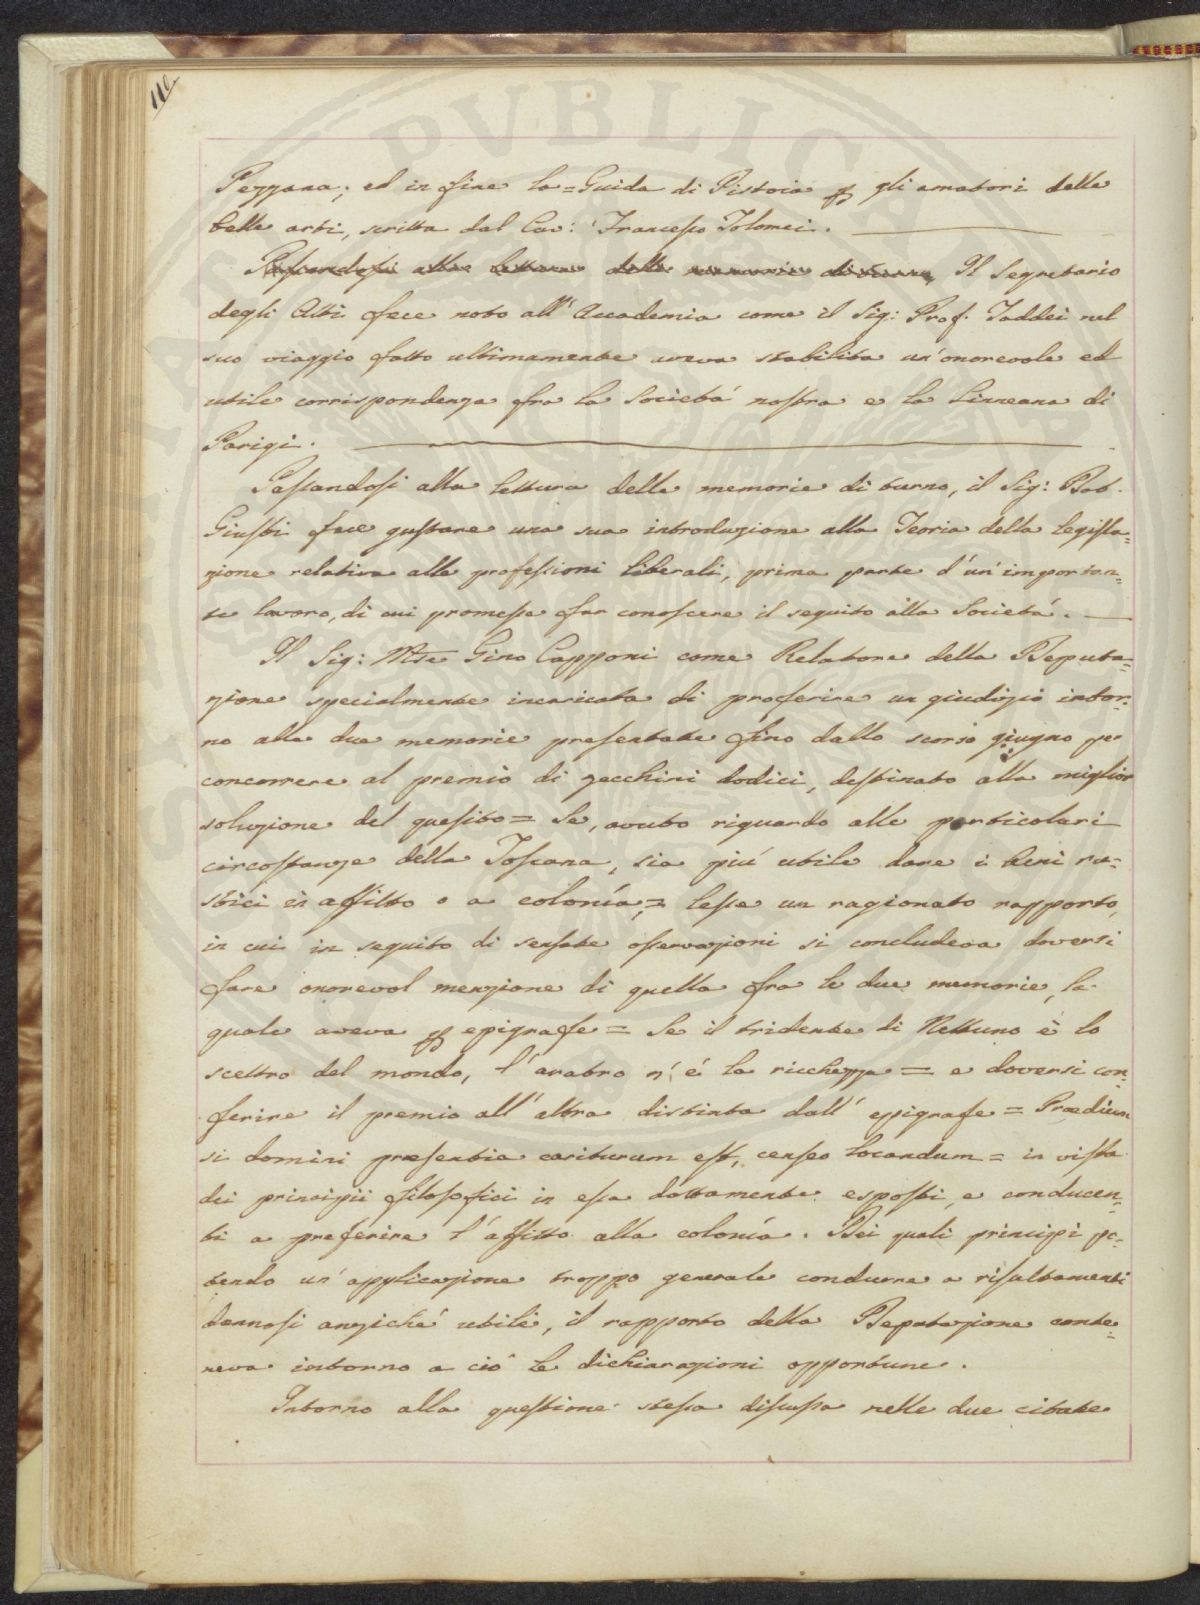 110
PVBLICA
Pezzana; ed in fine la = Guida di Pistoia p gli amatori delle
belle arti, scritta dal Cav: Francesco Tolomei.
Passandosi alla lettura delle memorie di turno, Il Segretario
degli Atti fece noto all'Accademia come il Sig: Prof. Taddei nel
suo viaggio fatto ultimamente aveva stabilita un'onorevole ed
utile corrispondenza fra la Società nostra e la Linneana di
Parigi.
Passandosi alla lettura delle memorie di turno, il Sig: Dot.
Giusti fece gustare una sua introduzione alla Teoria della legisla=
zione relativa alle professioni liberali, prima parte d'un'importan=
te lavoro, di cui promesse far conoscere il seguito alla Società.
Il Sig: Mse Gino Capponi come Relatore della Deputa=
zione specialmente incaricata di proferire un giudizio intor=
no alle due memorie presentate fino dallo scorso giugno pe
concorrere al premio di zecchini dodici, destinato alla miglior
soluzione del quesito = Se, avuto riguardo alle particolari
circostanze della Toscana, sia più utile dare i beni ru=
stici in affitto o a colonía, = lesse un ragionato rapporto,
in cui in seguito di sensate osservazioni si concludeva doversi
fare onorevol menzione di quella fra le due memorie, la
quale aveva p epigrafe = Se il tridente di Nettuno è lo
scettro del mondo, l'aratro n'è la ricchezza = e doversi con=
ferire il premio all'altra distinta dall'epigrafe = Praedium
si domini praesentia cariturum est, censeo locandum = in vista
dei principii filosofici in essa dottamente esposti, e conducen=
ti a preferire l'affitto alla colonía. Dei quali principi po=
tendo un'applicazione troppo generale condurre a risultamenti
dannosi anzichè utili, il rapporto della Deputazione conte=
neva intorno a ciò le dichiarazioni opportune.
Intorno alla questione stessa discussa nelle due citate